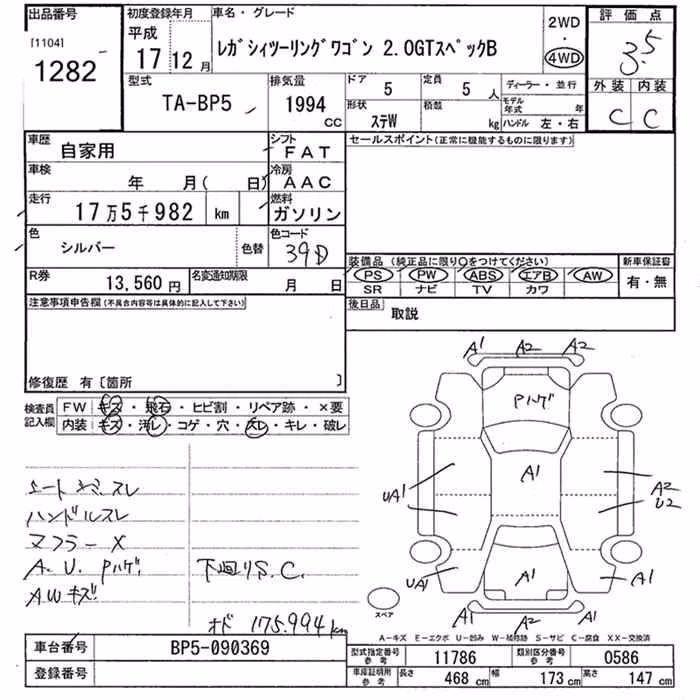 出品番号
[1104]
1282
初度登録年月
平成
17 12 月
車名・グレード
レガシィツーリングワゴン 2.0GTスペックB
2WD
・
4WD
評価点
3.5
外装 内装
C C
型式
TA-BP5
排気量
1994
CC
ドア
5
定員
5 人
形状
ステW
積載
kg
ディーラー・並行
モデル年式 年
ハンドル 左・右
車歴
自家用
シフト
FAT
セールスポイント(正常に機能するものに限ります)
車検
年 月( 日)
冷房
AAC
走行
17万5千982 km
燃料
ガソリン
色
シルバー
色替
色コード
39D
装備品 (純正品に限り○をつけてください)
PS PW ABS エアB AW
SR ナビ TV カワ
新車保証書
有・無
R券
13,560 円
名変通知期限
月 日
後日品
取説
注意事項申告欄(不具合内容等は具体的に記入して下さい)
修復歴 有〔箇所 〕
検査員記入欄
FW キズ・飛石・ヒビ割・リペア跡・×要
内装 キズ・汚レ・コゲ・穴・スレ・キレ・破レ
ハンドルスレ
マフラーX
A.U.Pハゲ
AWキズ
下廻りS.C.
オド 175.994km
A1 A2 A2
Pハゲ
A1
UA1
A2
U2
UA1
A1
A1
A1 A2 A1
スペア
A-キズ E-エクボ U-凹み W-補修跡 S-サビ C-腐食 XX-交換済
車台番号
BP5-090369
登録番号
型式指定番号 参考
11786
類別区分番号 参考
0586
車庫証明用 参考
長さ 468 cm
幅 173 cm
高さ 147 cm